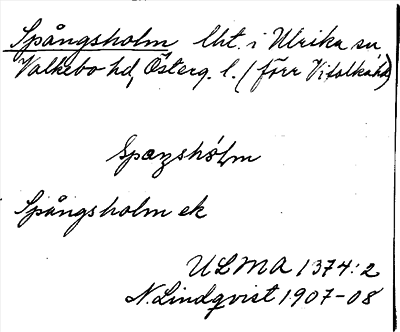 Spångsholm lht. i Ulrika sn,
Valkebo hd, Österg. l. (förr Vifolka hd)
Spångsholm ek
ULMA 1374:2
N. Lindqvist 1907-08